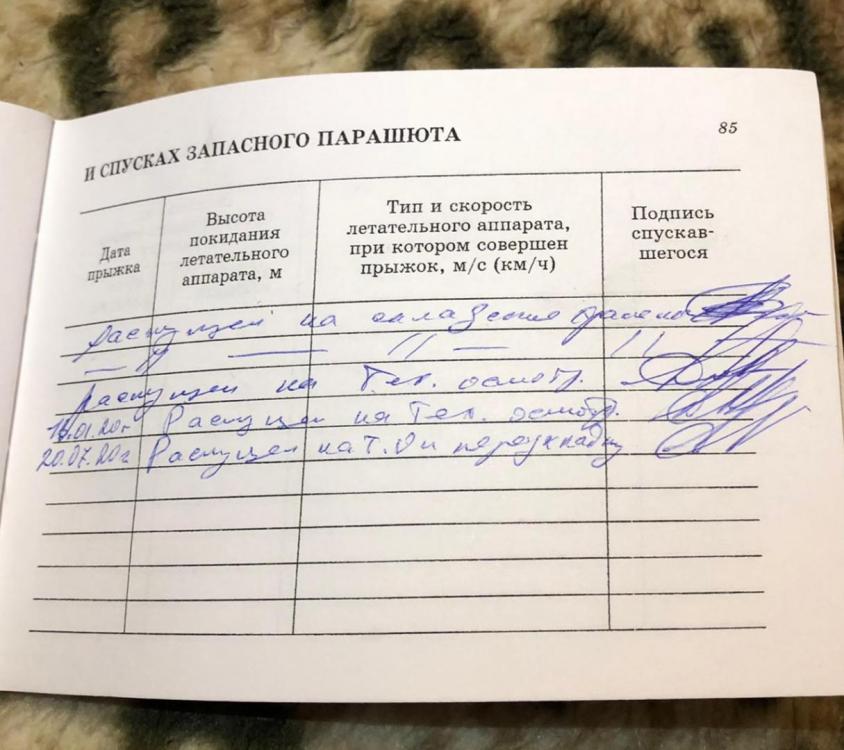 И СПУСКАХ ЗАПАСНОГО ПАРАШЮТА
85
Дата
прыжка
Высота
покидания
летательного
аппарата, м
Тип и скорость
летательного аппарата,
при котором совершен
прыжок, м/с (км/ч)
Подпись
спускав-
шегося
Распущен на складское хранение
— // — // — //
Распущен на Тех. осмотр.
Распущен на Тех. осмотр.
20.07.20г Распущен на Т.О и переукладку